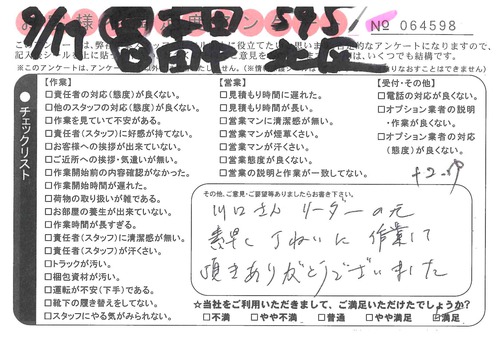 9/17 吉田 595
No 064598
☆このアンケートは、弊
記入シールを上に貼って
【作業】
□責任者の対応(態度)が良くない。
□他のスタッフの対応(態度)が良くない。
□作業を見ていて不安がある。
□責任者(スタッフ)に好感が持てない。
□お客様への挨拶が出来ていない。
□ご近所への挨拶・気遣いが無い。
□作業開始前の内容確認がなかった。
□作業開始時間が遅れた。
□荷物の取り扱いが雑である。
□お部屋の養生が出来ていない。
□作業時間が長すぎる。
□責任者(スタッフ)に清潔感が無い。
□責任者(スタッフ)が汗くさい。
□トラックが汚い。
□梱包資材が汚い。
□運転が不安(下手)である。
□靴下の履き替えをしてない。
□スタッフにやる気がみられない。
チェックリスト
【営業】
□見積もり時間に遅れた。
□見積もり時間が長い。
□営業マンに清潔感が無い。
□営業マンが煙草くさい。
□営業マンが汗くさい。
□営業態度が良くない。
□営業の説明と作業が一致してない。
【受付・その他】
□電話の対応が良くない。
□オプション業者の説明
・作業が良くない。
□オプション業者の対応
(態度)が良くない。
その他、ご意見・ご要望等ありましたらお書き下さい。
川口さん リーダーの元
素早く丁ねいに 作業して
頂きありがとうございました
☆当社をご利用いただきまして、ご満足いただけたでしょうか?
□不満 □やや不満 □普通 □やや満足 ☑満足